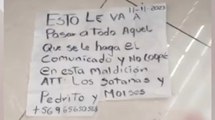 11-11-2023
ESTO LE VA A
Pasar a Todo Aquel
Que se le haga el
Comunicado y NO COOPE
En esta Maldición
ATT: Los Satanas y
Pedrito y Moises